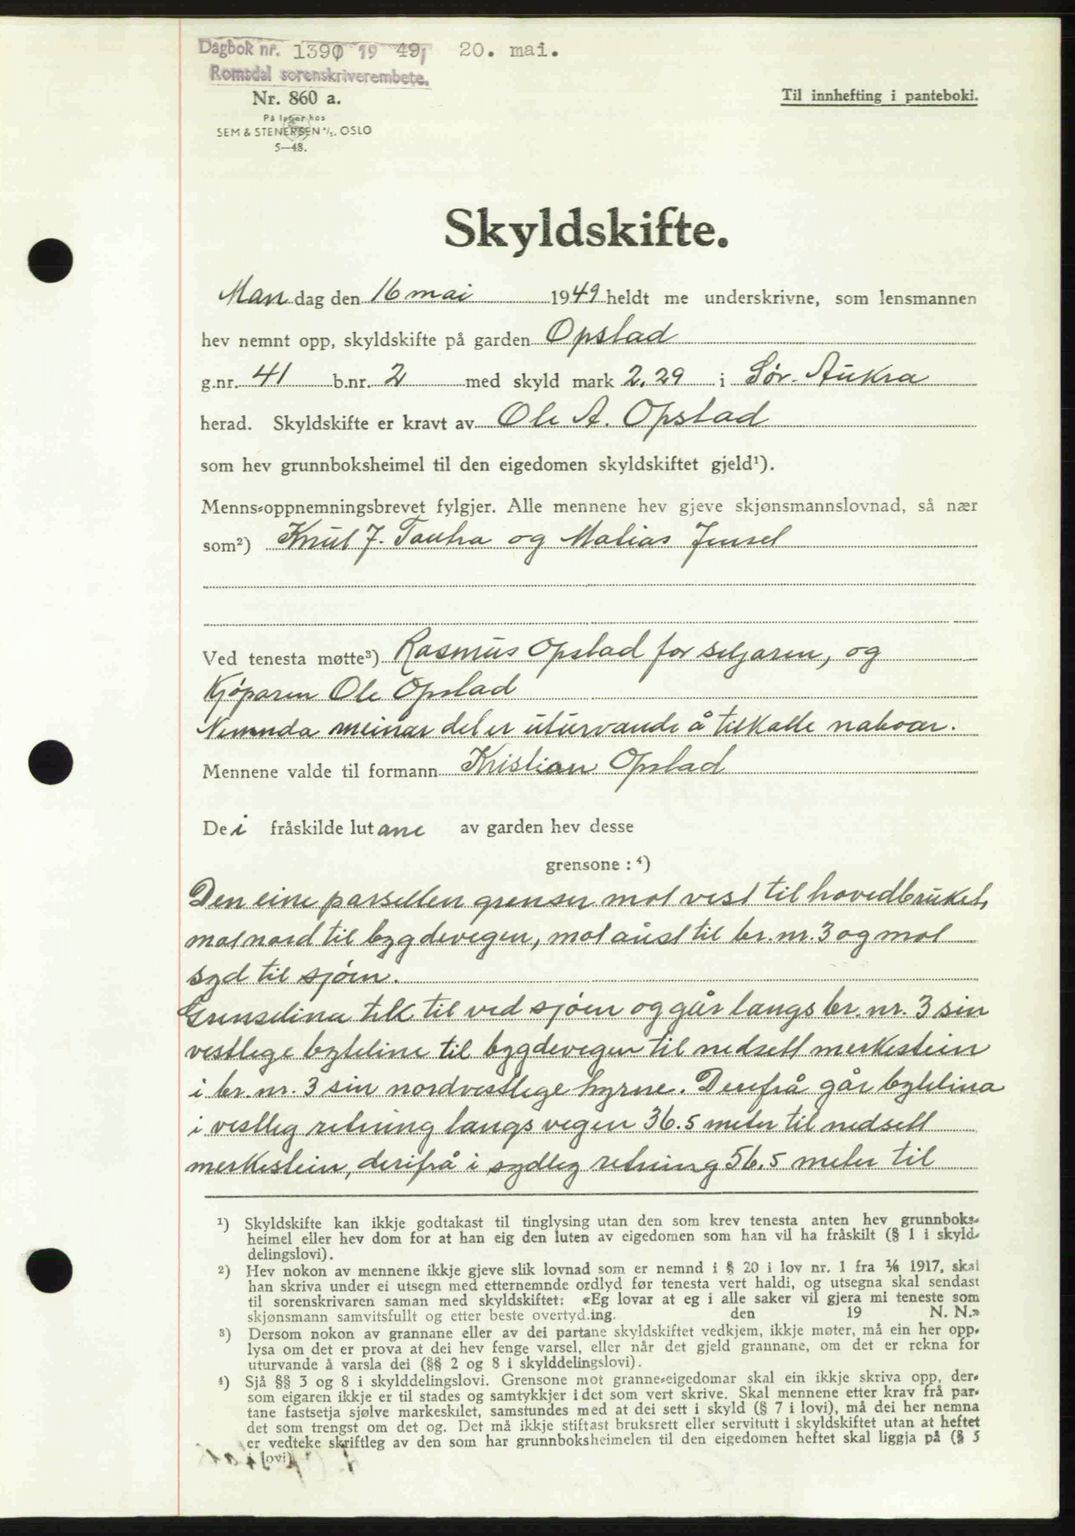 Dagbok nr. 1390 19 49, 20. mai.
Romsdal sorenskriverembete.
Nr. 860 a.
Til innhefting i panteboki.
På lager hos
SEM & STENERSEN A/S. OSLO
5—48.
Skyldskifte.
Man dag den 16 mai 1949 heldt me underskrivne, som lensmannen
hev nemnt opp, skyldskifte på garden Opstad
g.nr. 41 b.nr. 2 med skyld mark 2,29 i Sør-Aukra
herad. Skyldskifte er kravt av Ole A. Opstad
som hev grunnboksheimel til den eigedomen skyldskiftet gjeld¹).
Menns-oppnemningsbrevet fylgjer. Alle mennene hev gjeve skjønsmannslovnad, så nær
som²) Knut J. Tautra og Matias Jensel
Ved tenesta møtte³) Rasmus Opstad for seljaren, og
Kjøparen Ole Opstad
Nemnda meinar det er uturvande å tilkalle naboar.
Mennene valde til formann Kristian Opstad
De i fråskilde lutane av garden hev desse
grensone : ⁴)
Den eine parsellen grenser mot vest til hovedbruket,
mot nord til bygdevegen, mot aust til br. nr. 3 og mot
syd til sjøen.
Grenselina tek til ved sjøen og går langs br. nr. 3 sin
vestlege byteline til bygdevegen til nedsett merkestein
i br. nr. 3 sin nordvestlege hyrne. Derifrå går bytelina
i vestleg retning langs vegen 36.5 meter til nedsett
merkestein, derifrå i sydleg retning 56,5 meter til
¹) Skyldskifte kan ikkje godtakast til tinglysing utan den som krev tenesta anten hev grunnboks-
heimel eller hev dom for at han eig den luten av eigedomen som han vil ha fråskilt (§ 1 i skyld-
delingslovi).
²) Hev nokon av mennene ikkje gjeve slik lovnad som er nemnd i § 20 i lov nr. 1 fra 1/6 1917, skal
han skriva under ei utsegn med etternemnde ordlyd før tenesta vert haldi, og utsegna skal sendast
til sorenskrivaren saman med skyldskiftet: «Eg lovar at eg i alle saker vil gjera mi teneste som
skjønsmann samvitsfullt og etter beste overtyding. den 19 N. N.»
³) Dersom nokon av grannane eller av dei partane skyldskiftet vedkjem, ikkje møter, må ein her opp-
lysa om det er prova at dei hev fenge varsel, eller når det gjeld grannane, om det er rekna for
uturvande å varsla dei (§§ 2 og 8 i skylddelingslovi).
⁴) Sjå §§ 3 og 8 i skylddelingslovi. Grensone mot granne-eigedomar skal ein ikkje skriva opp, der-
som eigaren ikkje er til stades og samtykkjer i det som vert skrive. Skal mennene etter krav frå par-
tane fastsetja sjølve markeskilet, samstundes med at dei sett i skyld (§ 7 i lovi), må dei her nemna
det som trengst om det og. Det må ikkje stiftast bruksrett eller servitutt i skyldskiftet utan at heftet
er vedteke skriftleg av den som har grunnboksheimelen til den eigedomen heftet skal liggja på (§ 5
i lovi).